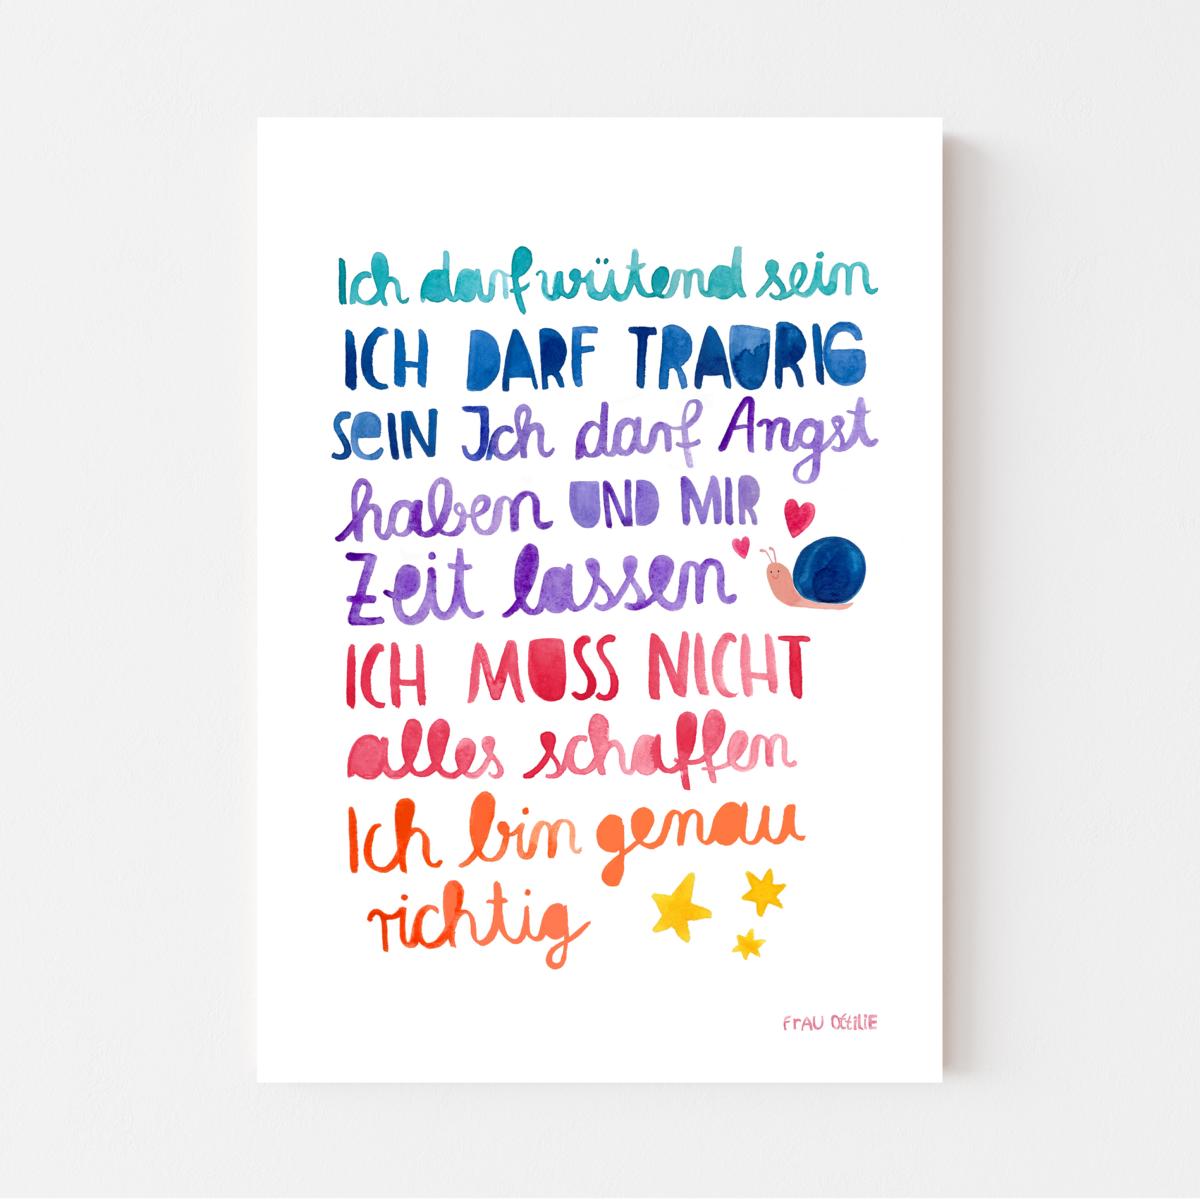 Ich darf wütend sein
ICH DARF TRAURIG
SeIN Ich darf Angst
haben UND MIR
Zeit lassen
ICH MUSS NICHT
alles schaffen
Ich bin genau
richtig
FrAU OttiliE